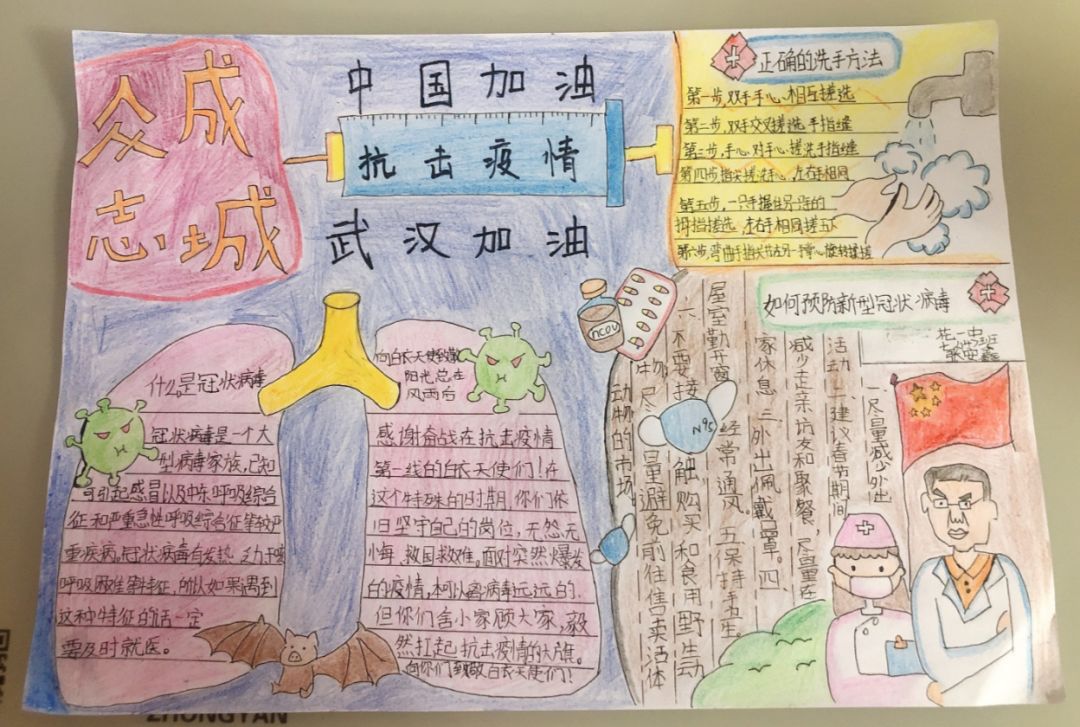 众成
志城
中国加油
抗击疫情
武汉加油
正确的洗手方法
第一步,双手手心相互搓选
第二步,双手交叉搓选手指缝
第三步,手心对手心搓洗手指缝
第四步指尖搓洗手心,左右手相同
第五步,一只手握住另一只的
拇指搓选,左右手相同搓五下
第六步,弯曲手指关节在另一手掌心旋转揉搓
如何预防新型冠状病毒
花一中
一、尽量减少外出
活动,二建议春节期间
减少走亲访友和聚餐,尽量在
家休息 三外出佩戴口罩。四
屋室勤开窗 经常通风。五保持手卫生。
六、不要接触购买和食用野生动
物,尽量避免前往售卖活体
动物的市场
ncov
N95
什么是冠状病毒
冠状病毒是一个大
型病毒家族,已知
可引起感冒以及中东呼吸综合
征和严重急性呼吸综合征等较严
重疾病。冠状病毒会发热 乏力干咳
呼吸困难等特征,所以如果遇到
这种特征的话一定
要及时就医。
向白衣天使致敬
阳光总在
风雨后
感谢奋战在抗击疫情
第一线的白衣天使们!在
这个特殊的时期,你们依
旧坚守自己的岗位,无怨无
悔,救国救难,面对突然爆发
的疫情,可以离病毒远远的.
但你们舍小家顾大家,毅
然扛起抗击疫情的大旗。
向你们致敬白衣天使们!
ZHONGYAN